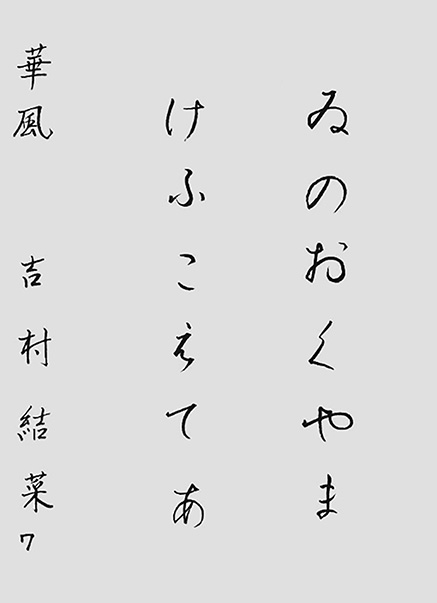 ゐのおくやま
けふこえてあ
華風 吉村結菜 7